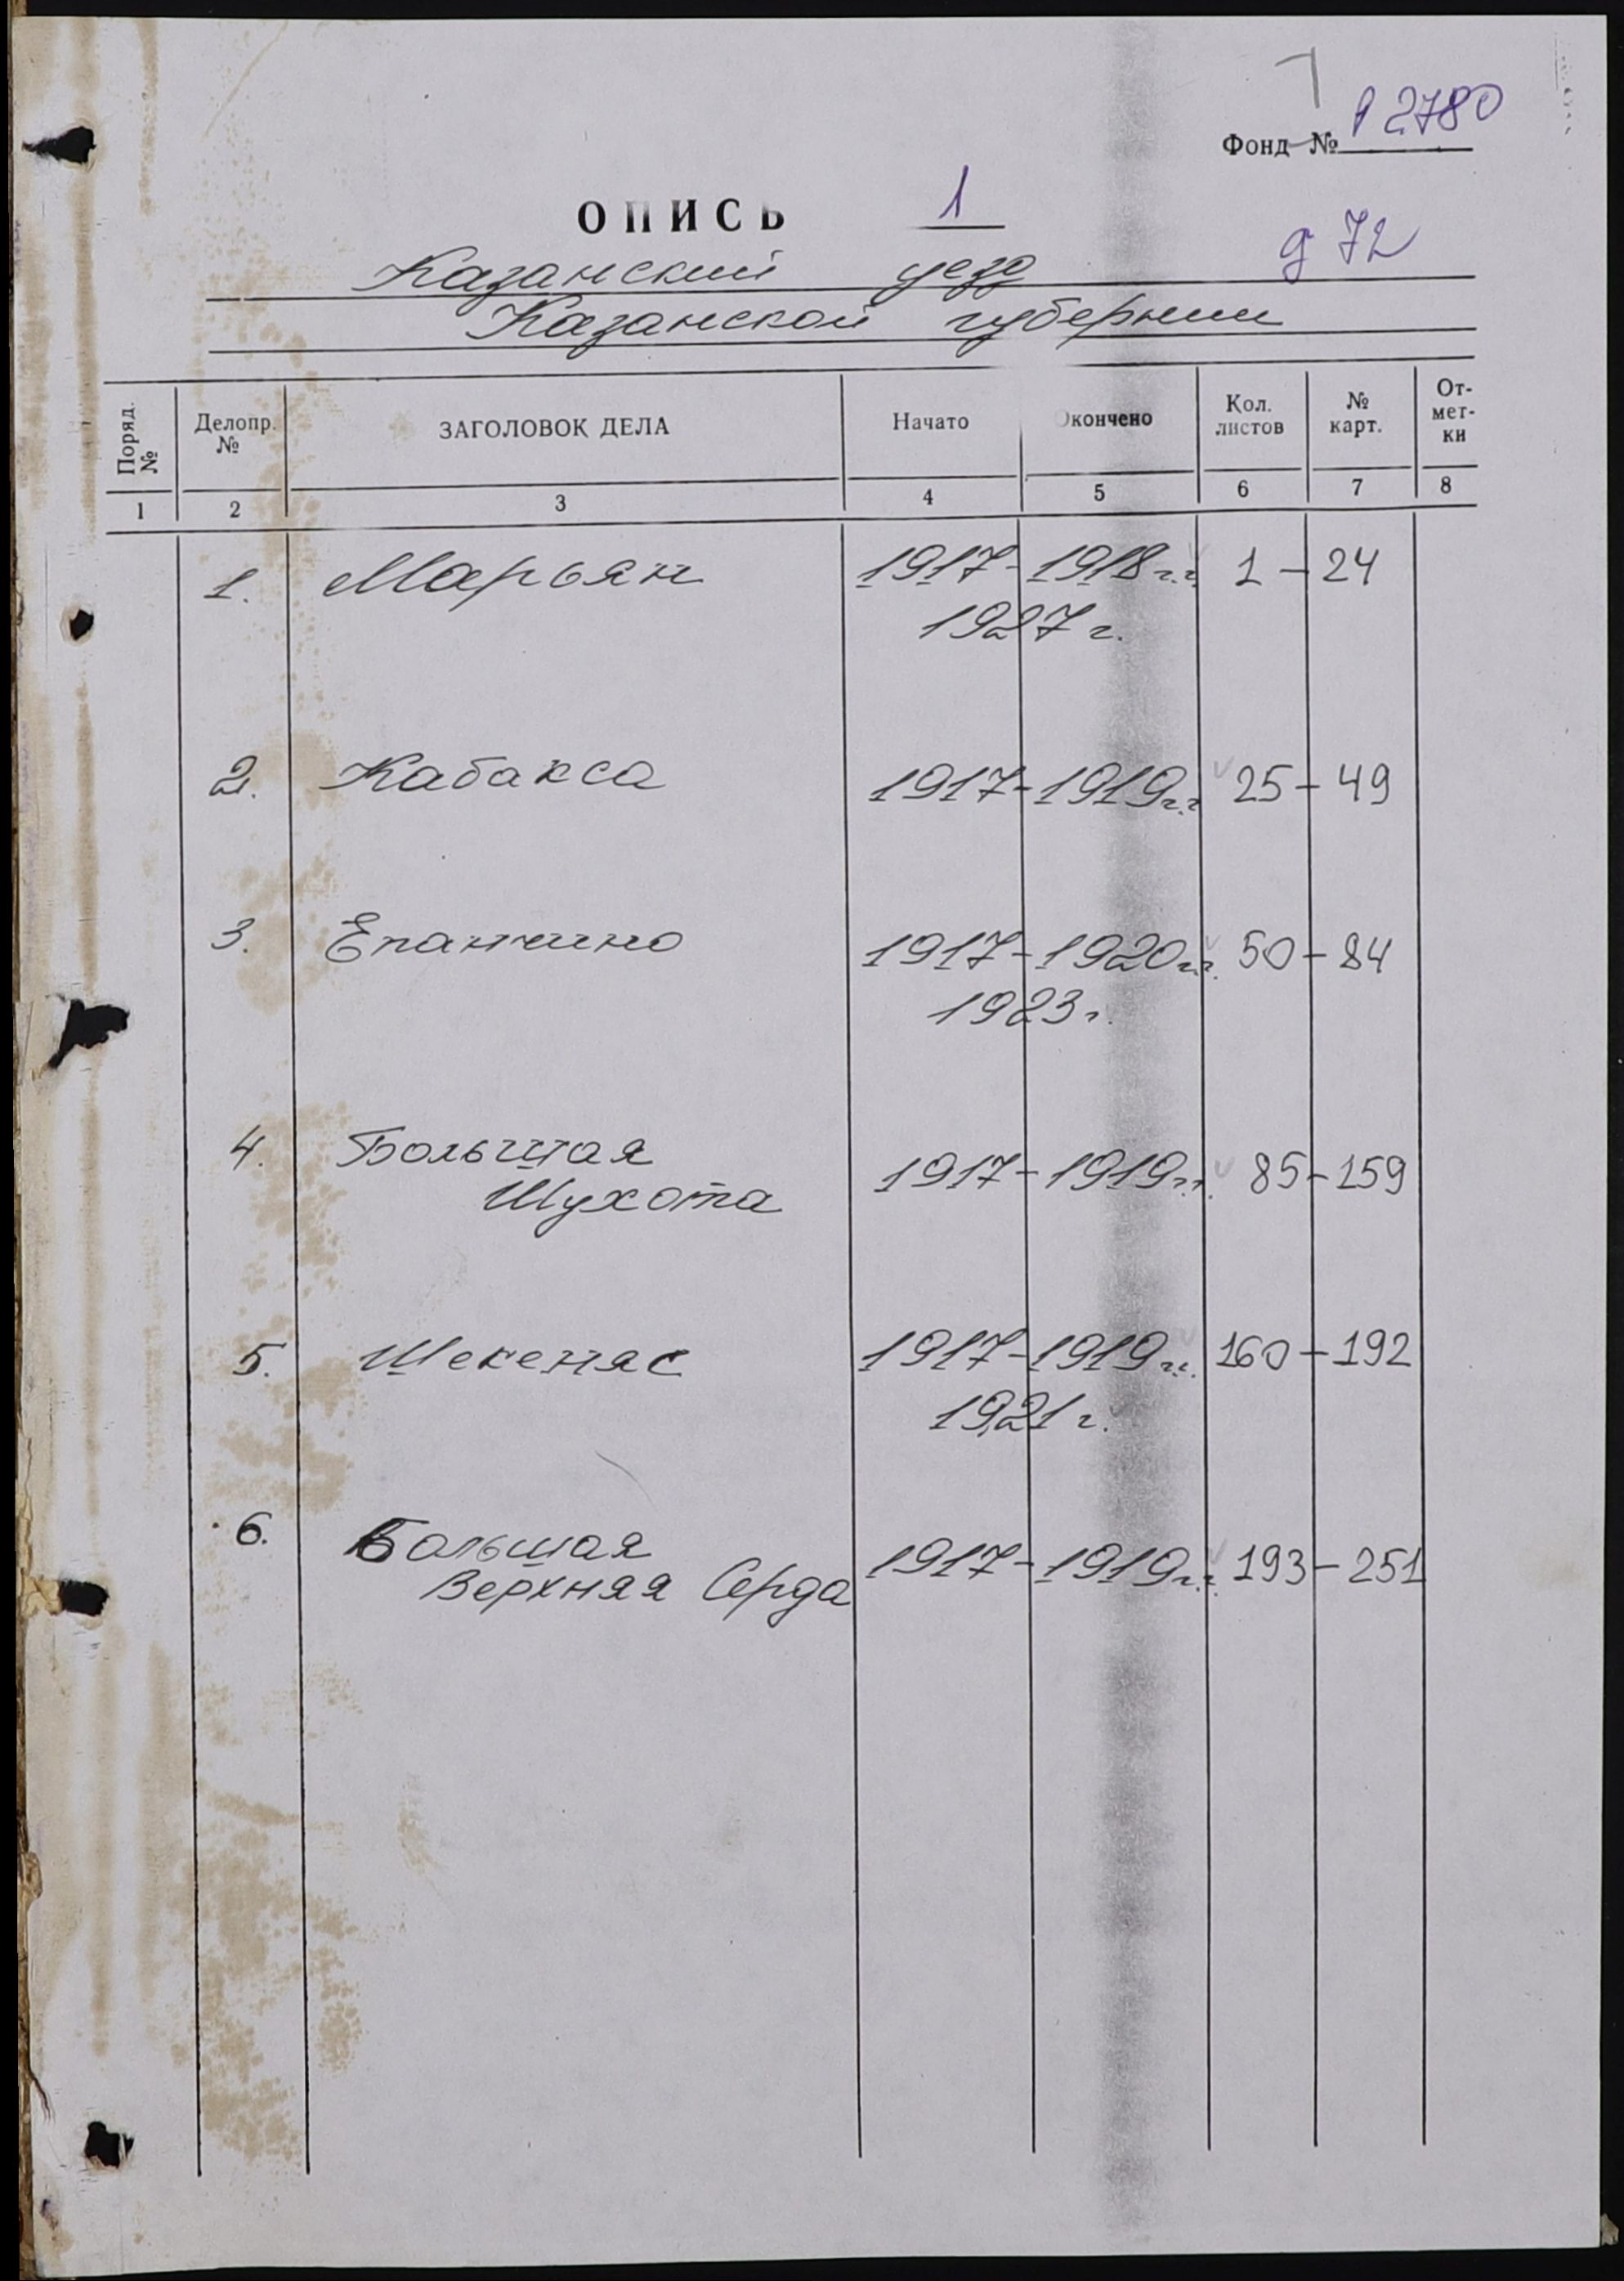 Фонд № Р 2780
ОПИСЬ 1
д 72
Казанский уезд
Казанской губернии
Поряд. №
Делопр. №
ЗАГОЛОВОК ДЕЛА
Начато
Окончено
Кол. листов
№ карт.
От-
мет-
ки
1 2 3 4 5 6 7 8
1. Марьян 1917-1918г.г. 1-24
1927г.
2. Кабакса 1917-1919г.г. 25-49
3. Епанчино 1917-1920г.г. 50-84
1923г.
4. Большая 1917-1919г.г. 85-159
Шухота
5. Шекеняс 1917-1919г.г. 160-192
1921г.
6. Большая 1917-1919г.г. 193-251
Верхняя Серда